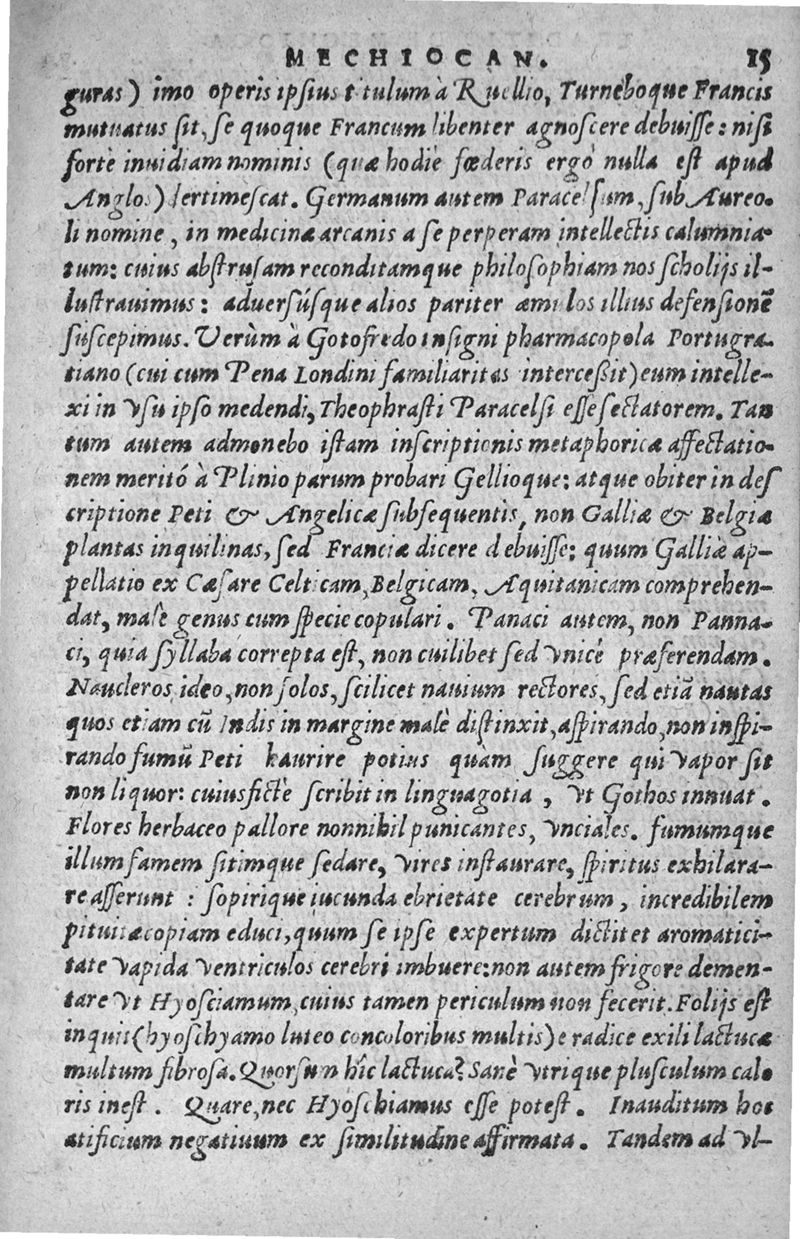 MECHIOCAN. 15
guras) imo operis ipsius titulum à Ruellio, Turneboque Francis
mutuatus sit, se quoque Francum libenter agnoscere debuisse: nisi
fortè inuidiam nominis (quæ hodiè fœderis ergò nulla est apud
Anglos) pertimescat. Germanum autem Paracelsum, sub Aureo-
li nomine, in medicinæ arcanis a se perperam intellectis calumnia-
tum: cuius abstrusam reconditamque philosophiam nos scholijs il-
lustrauimus: aduersúsque alios pariter æmulos illius defensionē
suscepimus. Verùm à Gotofredo insigni pharmacopola Portugra-
tiano (cui cum Pena Londini familiaritas intercessit) eum intelle-
xi in vsu ipso medendi, Theophrasti Paracelsi esse sectatorem. Tan
tum autem admonebo istam inscriptionis metaphoricæ affectatio-
nem meritó à Plinio parum probari Gellioque: atque obiter in des
criptione Peti & Angelicæ subsequentis, non Galliæ & Belgiæ
plantas inquilinas, sed Franciæ dicere debuisse: quum Galliæ ap-
pellatio ex Cæsare Celticam, Belgicam, Aquitanicam comprehen-
dat, malè genus cum specie copulari. Panaci autem, non Panna-
ci, quia syllaba correpta est, non cuilibet sed vnicè præferendam.
Naucleros ideo, non solos, scilicet nauium rectores, sed etiā nautas
quos etiam cū Indis in margine malè distinxit, aspirando, non inspi-
rando fumū Peti haurire potius quàm suggere qui vapor sit
non liquor: cuius fictè scribit in linguagotia, vt Gothos innuat.
Flores herbaceo pallore nonnihil punicantes, vnciales. fumumque
illum famem sitimque sedare, vires instaurare, spiritus exhilara-
re asserunt: sopirique iucunda ebrietate cerebrum, incredibilem
pituitæ copiam educi, quum se ipse expertum dictitet aromatici-
tate vapida ventriculos cerebri imbuere: non autem frigore demen-
tare vt Hyosciamum, cuius tamen periculum non fecerit. Folijs est
inquit (hyoschyamo luteo concoloribus multis) e radice exili lactucæ
multum fibrosa. Quorsun hîc lactuca? Sanè vtrique plusculum calo
ris inest. Quare, nec Hyoschiamus esse potest. Inauditum hoc
atificium negatiuum ex similitudine affirmata. Tandem ad vl-